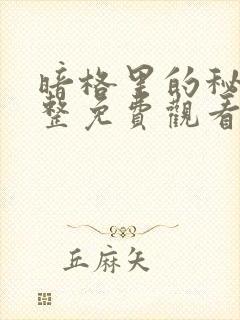 暗格里的秘
整免費觀看
丘麻矢